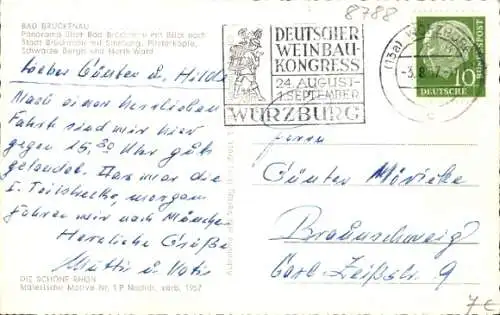 BAD BRÜCKENAU
Panorama Blatt Bad Brückenau mit Blick nach
Stadt Brückenau mit Sinntung, Pilsterköpfe,
Schwarze Berge und Harth Wald
Liebe Günter u. Hilde
Nach einer herrlichen
Fahrt sind wir hier
gegen 15,30 Uhr gut
gelandet. Das war die
1. Teilstrecke, morgen
fahren wir nach München
Herzliche Grüße
Mutti u. Vati
DIE SCHÖNE RHÖN
Malerische Motive Nr. 1 P Nachdr. verb. 1957
8788
DEUTSCHER
WEINBAU-
KONGRESS
24. AUGUST-
1. SEPTEMBER
WÜRZBURG
(13a) WÜRZBURG
-3.8.
c
10
DEUTSCHE
BUNDESPOST
Herrn
Günter Möricke
Braunschweig
Carl-Zeißstr. 9